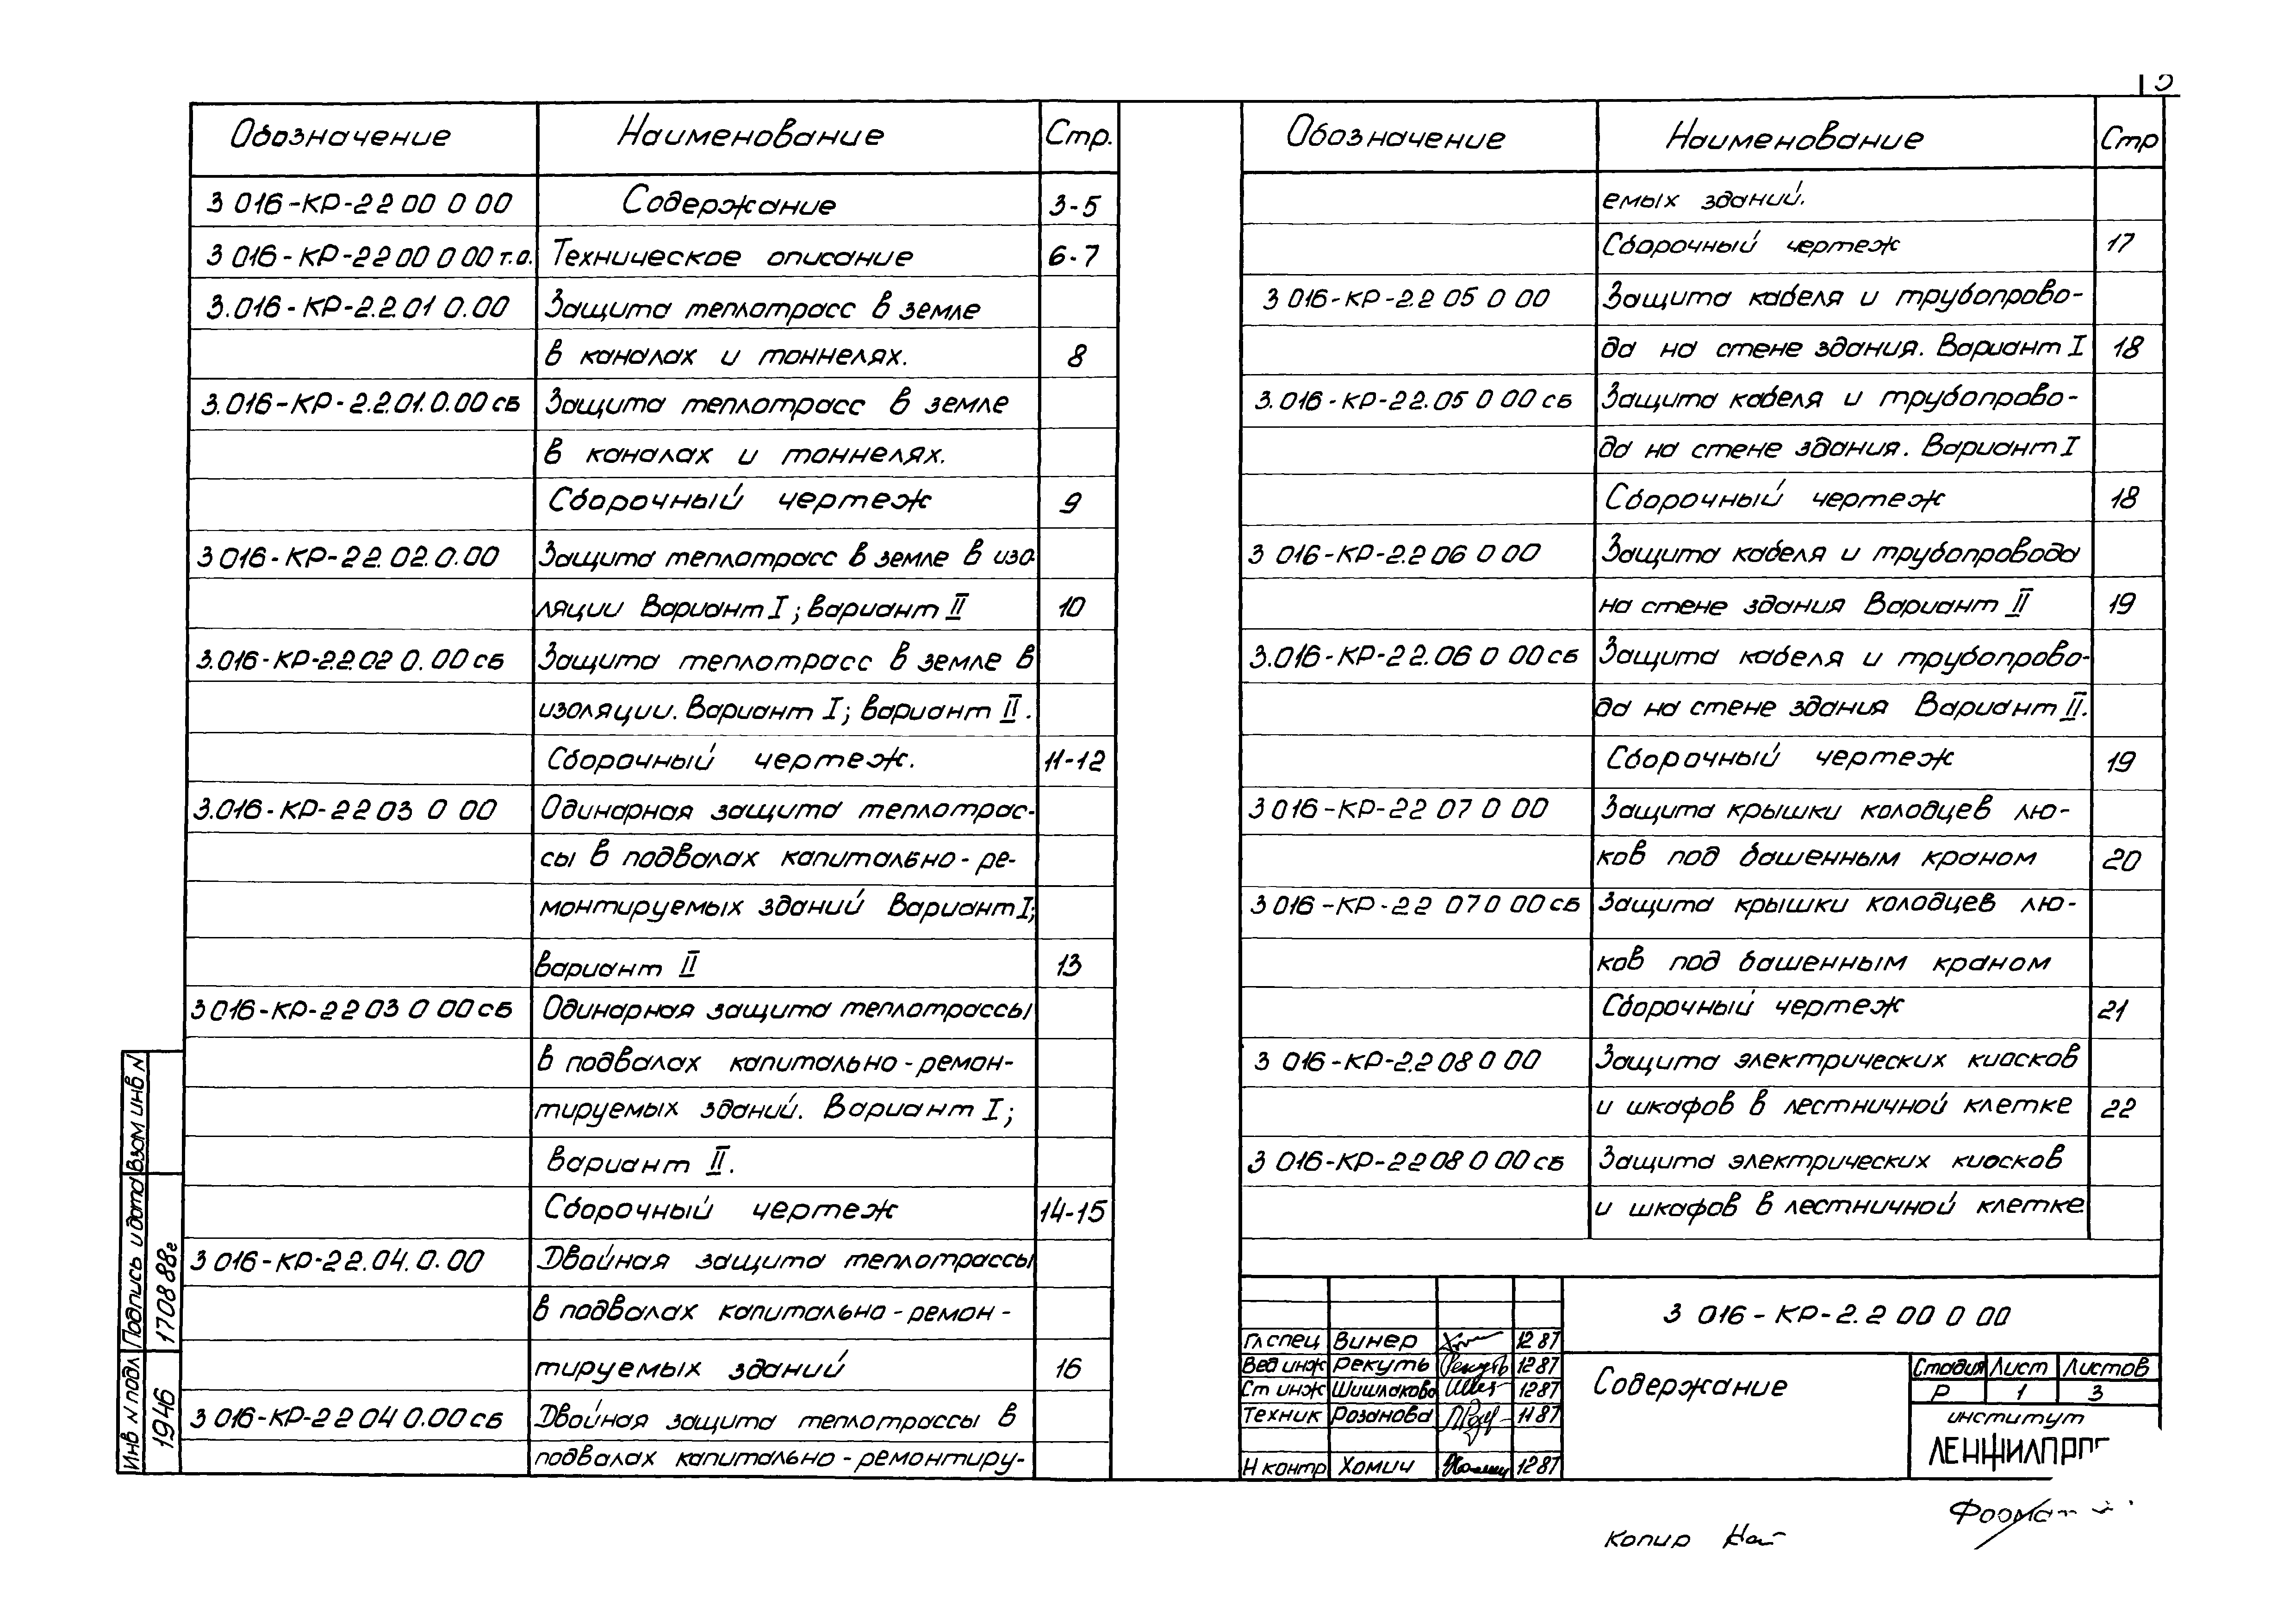 Обозначение Наименование Стр.
3 016-КР-22 00 0 00 Содержание 3-5
3 016-КР-22 00 0 00 т.о. Техническое описание 6-7
3.016-КР-2.2.01 0.00 Защита теплотрасс в земле
в каналах и тоннелях. 8
3.016-КР-2.2.01.0.00 сб Защита теплотрасс в земле
в каналах и тоннелях.
Сборочный чертеж 9
3 016-КР-22.02.0.00 Защита теплотрасс в земле в изо-
ляции Вариант I; вариант II 10
3.016-КР-2.2.02 0.00 сб Защита теплотрасс в земле в
изоляции. Вариант I; вариант II.
Сборочный чертеж. 11-12
3.016-КР-22 03 0 00 Одинарная защита теплотрас-
сы в подвалах капитально-ре-
монтируемых зданий Вариант I;
вариант II 13
3 016-КР-22 03 0 00 сб Одинарная защита теплотрассы
в подвалах капитально-ремон-
тируемых зданий. Вариант I;
вариант II.
Сборочный чертеж 14-15
3 016-КР-22.04.0.00 Двойная защита теплотрассы
в подвалах капитально-ремон-
тируемых зданий 16
3 016-КР-22 04 0.00 сб Двойная защита теплотрассы в
подвалах капитально-ремонтиру-
Обозначение Наименование Стр
емых зданий.
Сборочный чертеж 17
3 016-КР-2.2 05 0 00 Защита кабеля и трубопрово-
да на стене здания. Вариант I 18
3.016-КР-22.05 0 00 сб Защита кабеля и трубопрово-
да на стене здания. Вариант I
Сборочный чертеж 18
3 016-КР-2.2 06 0 00 Защита кабеля и трубопровода
на стене здания Вариант II 19
3.016-КР-22.06 0 00 сб Защита кабеля и трубопрово-
да на стене здания Вариант II.
Сборочный чертеж 19
3 016-КР-22 07 0 00 Защита крышки колодцев лю-
ков под башенным краном 20
3 016-КР-22 07 0 00 сб Защита крышки колодцев лю-
ков под башенным краном
Сборочный чертеж 21
3 016-КР-2.2 08 0 00 Защита электрических киосков
и шкафов в лестничной клетке 22
3 016-КР-22 08 0 00 сб Защита электрических киосков
и шкафов в лестничной клетке
3 016-КР-2.2 00 0 00
Гл спец Винер 12 87
Вед инж Рекуть 12 87
Ст инж Шишлакова 12 87
Техник Розанова 11 87
Н контр Хомич 12 87
Содержание
Стадия Лист Листов
Р 1 3
институт
ЛЕНЖИЛПРО
Копир
Формат
Взам инв N
Подпись и дата 1708 88г
Инв N подл 1946